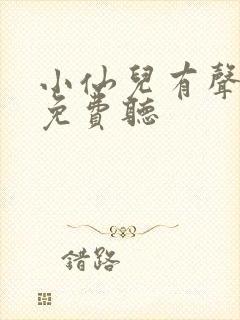 小仙兒有聲
免費聽
錯路